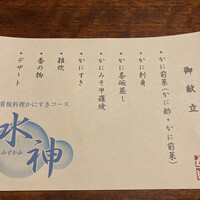 御献立
・かに前菜(かに酢・かに前菜)
・かに刺身
・かに茶碗蒸し
・かにみそ甲羅焼
・かにすき
・雑炊
・香の物
・デザート
看板料理かにすきコース
水神
みずかみ